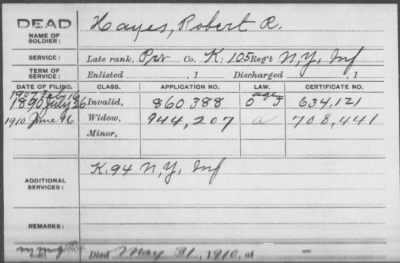 DEAD
NAME OF SOLDIER: Hayes, Robert R.
SERVICE: Late rank, Prv Co. K, 105 Reg't N.Y. Inf
TERM OF SERVICE: Enlisted , 1 Discharged , 1
DATE OF FILING. CLASS. APPLICATION NO. LAW. CERTIFICATE NO.
1907 Feb 16 age
1890 July 26 Invalid, 860388 634,121
1910 June 16 Widow, 944,207 a 708,441
Minor,
K. 94 N.Y. Inf
ADDITIONAL SERVICES:
REMARKS:
Died May 31, 1910, at —